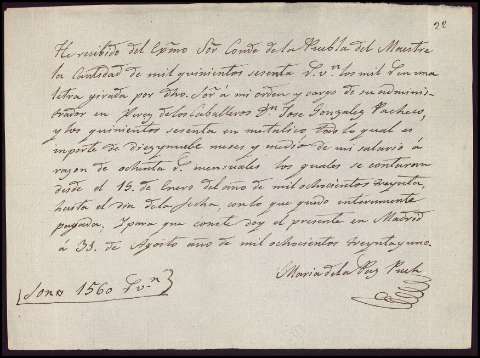 22
He recibido del Exmo Sor Conde de la Puebla del Maestre
la Cantidad de mil quinientos sesenta r. vn. los mil r. en una
letra girada por dho. Sor á mi orden y cargo de su adminis-
trador en Xerez de los Caballeros Dn. Jose Gonzalez Pacheco,
y los quinientos sesenta en metalico, todo lo qual es
importe de diez y nuebe meses y medio de mi salario á
razon de ochenta r. mensuales los quales se contaran
desde el 15 de Enero del año de mil ochocientos treynta,
hasta el dia de la fecha, con lo que quedo enteramente
pagada. Y para que conste doy el presente en Madrid
á 31. de Agosto año de mil ochocientos treynta y uno.
Maria de la Paz
Son 1560 r. vn.